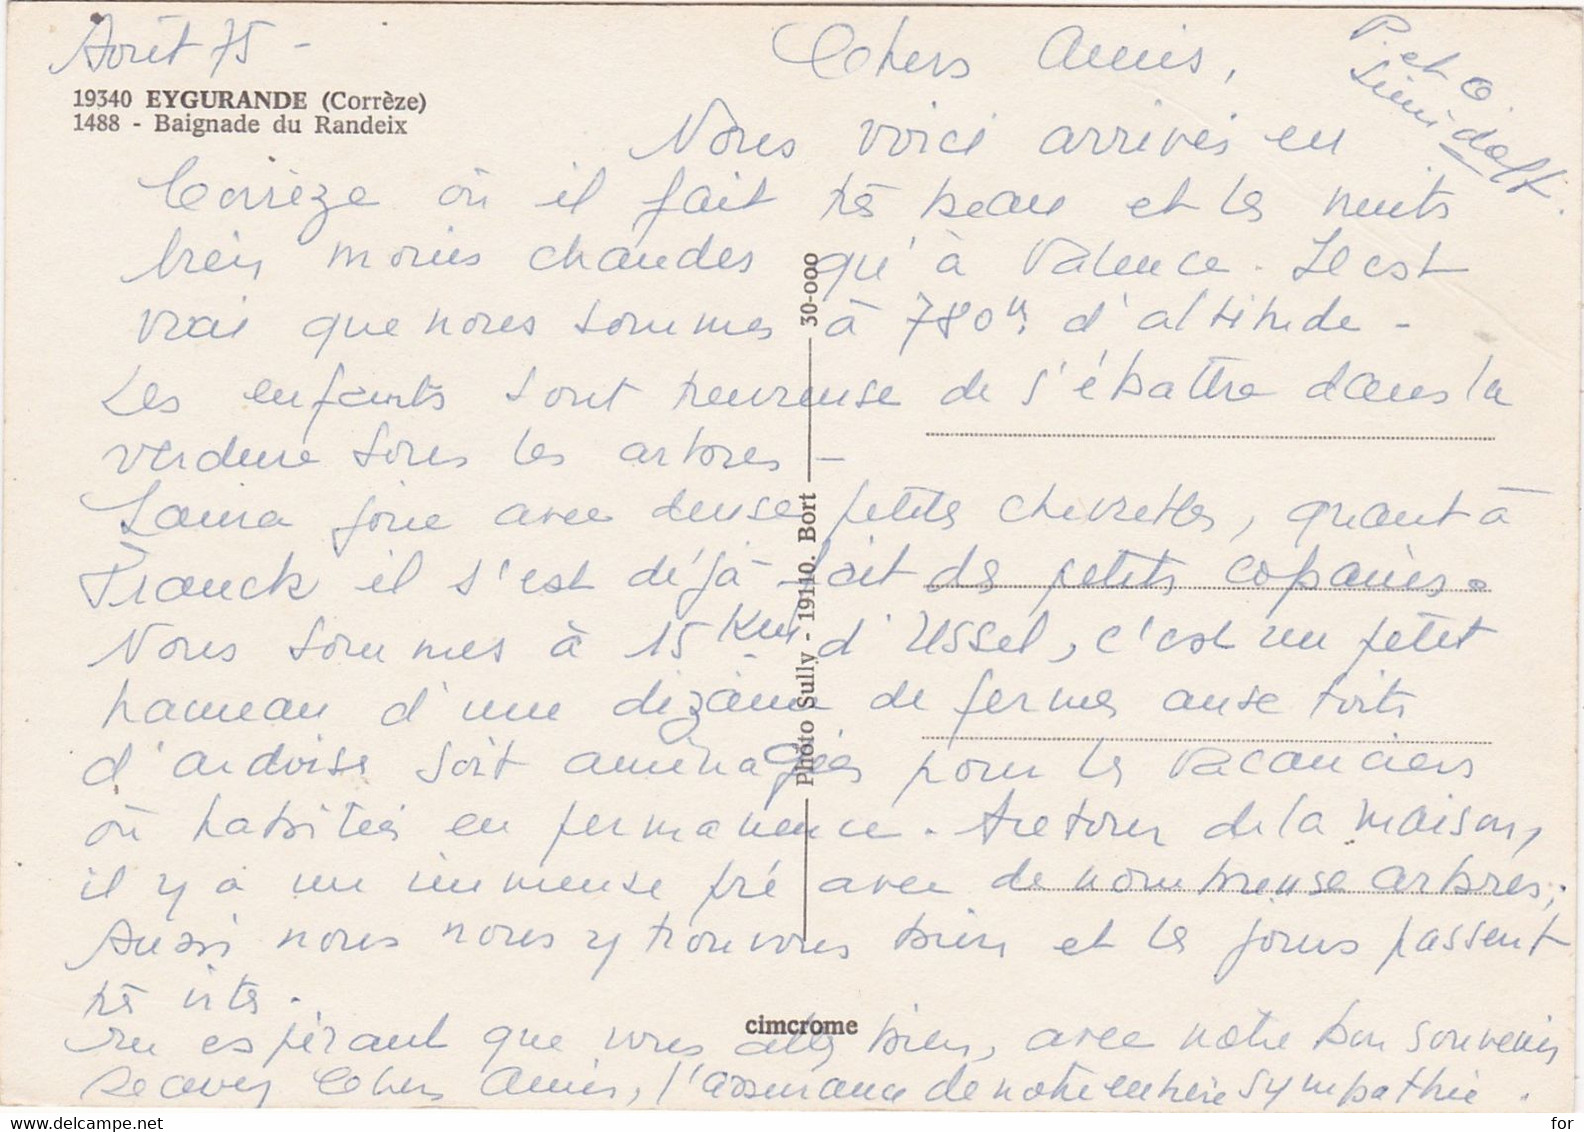 Août 75 -
19340 EYGURANDE (Corrèze)
1488 - Baignade du Randeix
Chers Amis,
P. et O.
Nous voici arrivés en
Corrèze où il fait très beau et les nuits
bien moins chaudes qu'à Valence. Il est
vrai que nous sommes à 780m d'altitude -
Les enfants sont heureux de s'ébattre dans la
verdure sous les arbres -
Laura joue avec deux petites chevrettes, quant à
Franck il s'est déjà fait des petits copains.
Nous sommes à 15 Km d'Ussel, c'est un petit
hameau d'une dizaine de fermes aux toits
d'ardoise soit aménagées pour les vacanciers
où habitées en permanence. Autour de la maison,
il y a un immense pré avec de nombreux arbres,
Aussi nous nous y trouvons bien et les jours passent
très vite.
En espérant que vous allez bien, avec notre bon souvenir
recevez Chers Amis, l'assurance de notre entière sympathie.
Photo Sully - 19110. Bort — 30-000
cimcrome
for